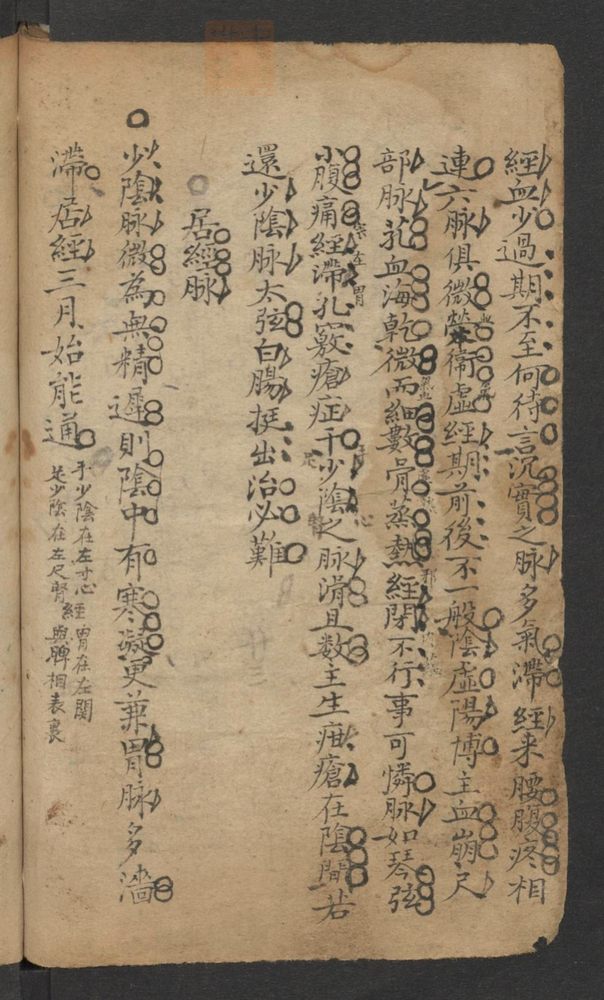 經血少過期不至何待言沉實之脉多氣滯經来腰腹疼相
連六脉俱微榮衛虛經期前後不一般陰虛陽博主血崩尺
部脉芤血海乾微而細數骨蒸熱經閉不行事可憐脉如琴弦
小腹痛經滯孔竅瘡症干少陰之脉滑且数主生疳瘡在陰間若
還少陰脉太弦白腸挺出治必難
居經脉
少陰脉微為無精遲則陰中有寒凝更兼胃脉多濇
滯居經三月始能通
手少陰在左寸心經 胃在右関
足少陰在左尺腎 與脾相表裏